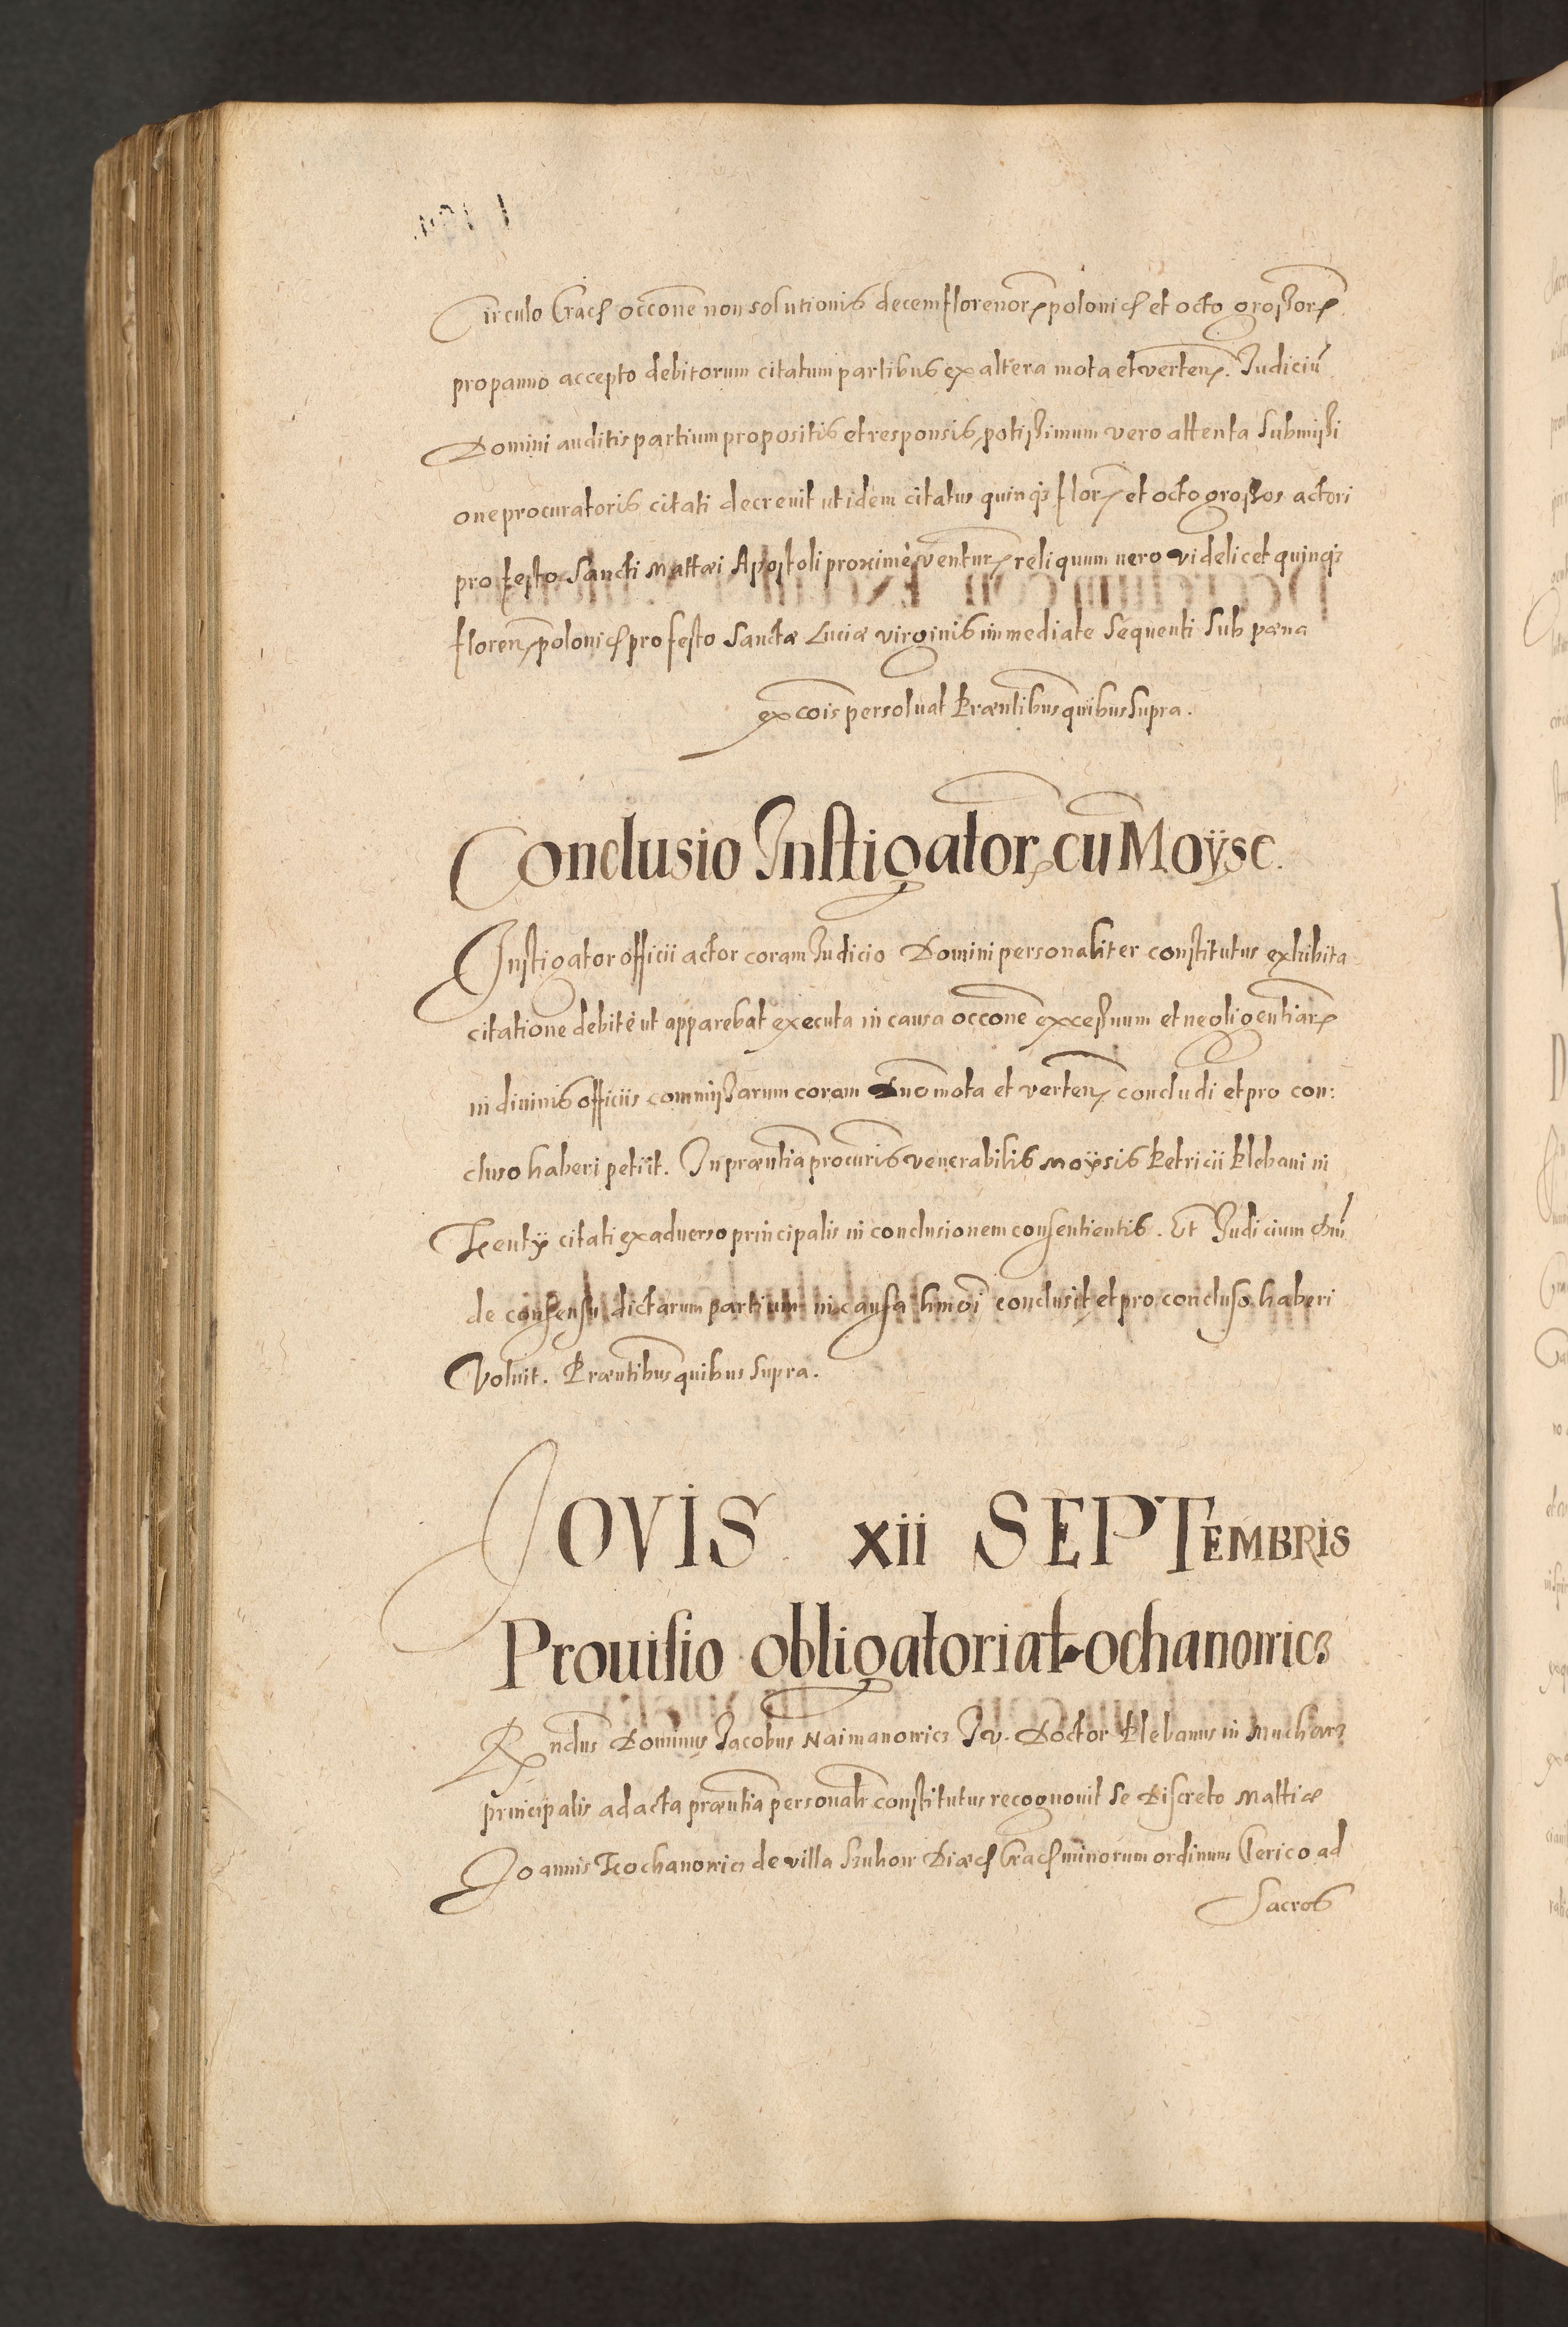 Circulo Crac̃ occōne non solutionis decem florenorꝝ polonic̃ et octo großorꝝ
pro panno accepto debitorum citatum partibus ex altera mota et verteñ. Judiciū
Domini auditis partium propositis et responsis, potißimum vero attenta submißi
one procuratoris citati decreuit ut idem citatus quinqȝ florꝝ et octo großos actori
pro festo Sancti Mattæi Apostoli proximè ventur̃ reliquum uero videlicet quinqȝ
floreñ polonic̃ pro festo Sanctæ Luciæ virginis immediate sequenti sub pæna
excōis persoluat Præntibus quibus supra.
Conclusio Instigator̃ cū Moÿse.
Instigator officii actor coram Judicio Domini personaliter constitutus exhibita
citatione debitè ut apparebat executa in causa occōne exceßuum et negligentiarꝝ
in diuinis officiis commißarum coram Dno mota et verteñ concludi et pro con:
cluso haberi petiit. In præntia procuris venerabilis Moÿsis Petricii Plebani in
Kentÿ citati ex aduerso principalis in conclusionem consentientis. Et Judicium dni
de consensu dictarum partium in causa hmoi conclusit et pro concluso haberi
Voluit. Præntibus quibus supra.
JOVIS xii SEPTEMBRIS
Prouisio obligatoria Kochanowicȝ
Rndus Dominus Jacobus Naimanowicȝ J.V. Doctor Plebanus in Mucharȝ
principalis ad acta præntia personalr constitutus recognouit se Discreto Mattiæ
Joannis Kochanowicȝ de villa Diæc̃ Crac̃ minorum ordinum Clerico ad
Sacros